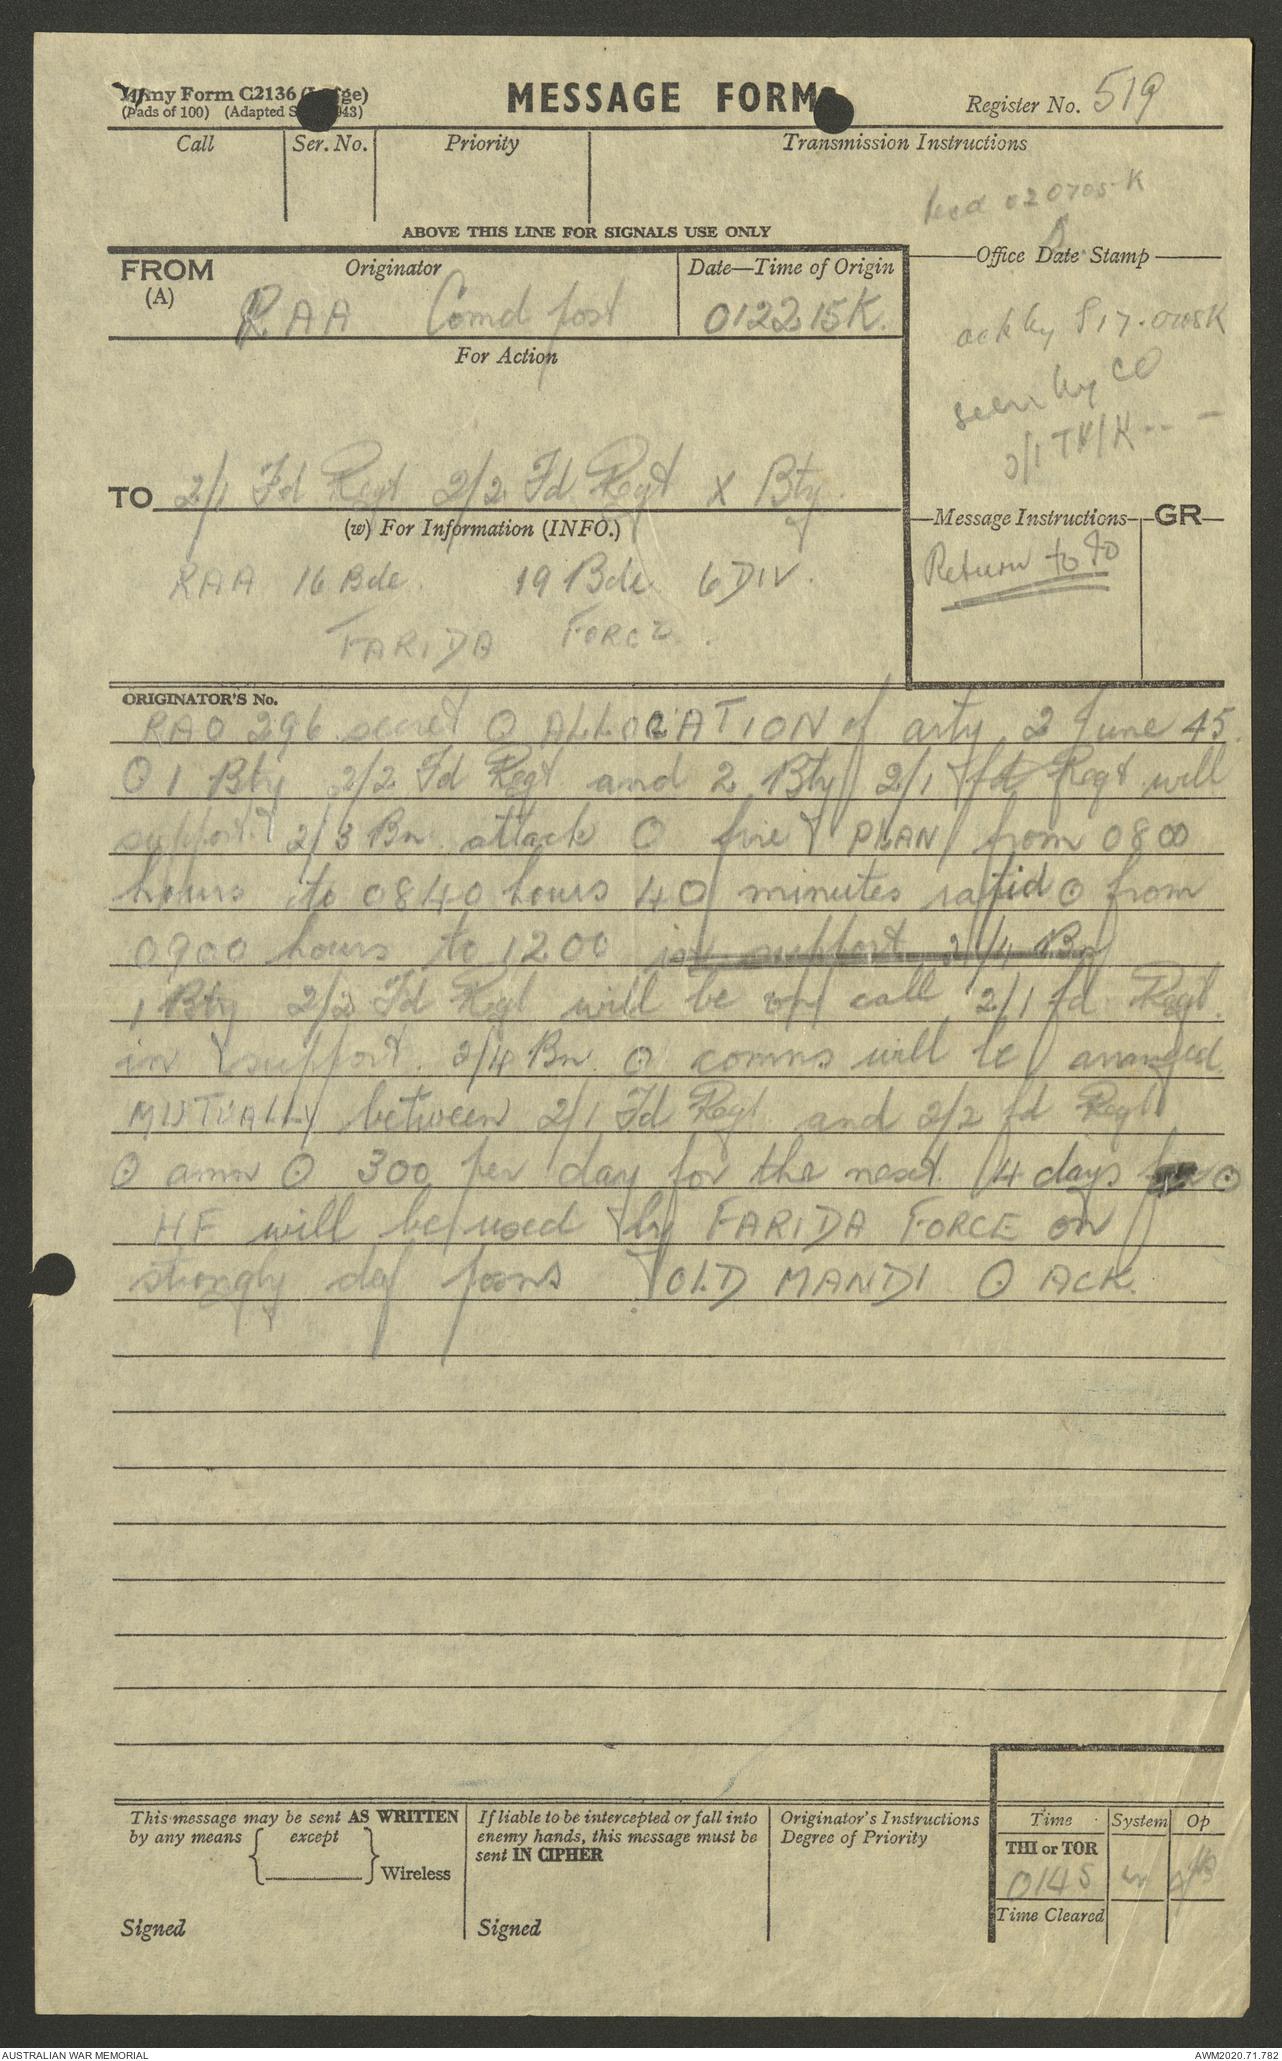 Army Form C2136 (Large)
(Pads of 100) (Adapted S 43)
MESSAGE FORM
Register No. 519
Call Ser. No. Priority Transmission Instructions
Recd 020705K
ABOVE THIS LINE FOR SIGNALS USE ONLY
FROM
(A)
Originator
Date—Time of Origin
Office Date Stamp
RAA Comd post 012215K.
ack by 0708K
For Action
seen by CO
TO 2/1 Fd Regt 2/2 Fd Regt X Bty
(w) For Information (INFO.)
Message Instructions GR
RAA 16 Bde. 19 Bde 6 DIV.
Return to IO
FARIDA FORCE.
ORIGINATOR'S No.
RAO 296 secret O ALLOCATION of arty 2 June 45.
O 1 Bty 2/2 Fd Regt and 2 Bty 2/1 fd Regt will
support 2/3 Bn attack O fire PLAN from 0800
hours to 0840 hours 40 minutes O from
0900 hours to 1200 in support 2/4 Bn
1 Bty 2/2 Fd Regt will be on call 2/1 fd Regt.
in support. 2/4 Bn. O comns will be arranged
MUTUALLY between 2/1 Fd Regt and 2/2 fd Regt
O amn O 300 per day for the next 4 days O
HF will be used by FARIDA FORCE on
strongly def posns OLD MANDI O ACK.
This message may be sent AS WRITTEN
by any means except
Wireless
Signed
If liable to be intercepted or fall into
enemy hands, this message must be
sent IN CIPHER
Signed
Originator's Instructions
Degree of Priority
Time System Op
THI or TOR
0145
Time Cleared
AUSTRALIAN WAR MEMORIAL
AWM2020.71.782